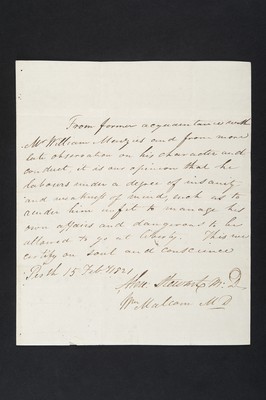 From former acquaintance with
Mr William Menzies and from more
late observation on his character and
conduct, it is our opinion that he
labours under a degree of insanity
and weakness of mind, such as to
render him unfit to manage his
own affairs and dangerous to be
allowed to go at liberty. This we
certify on soul and conscience
Perth 15 Feby 1821
Stewart M.D.
Wm Malcom MD